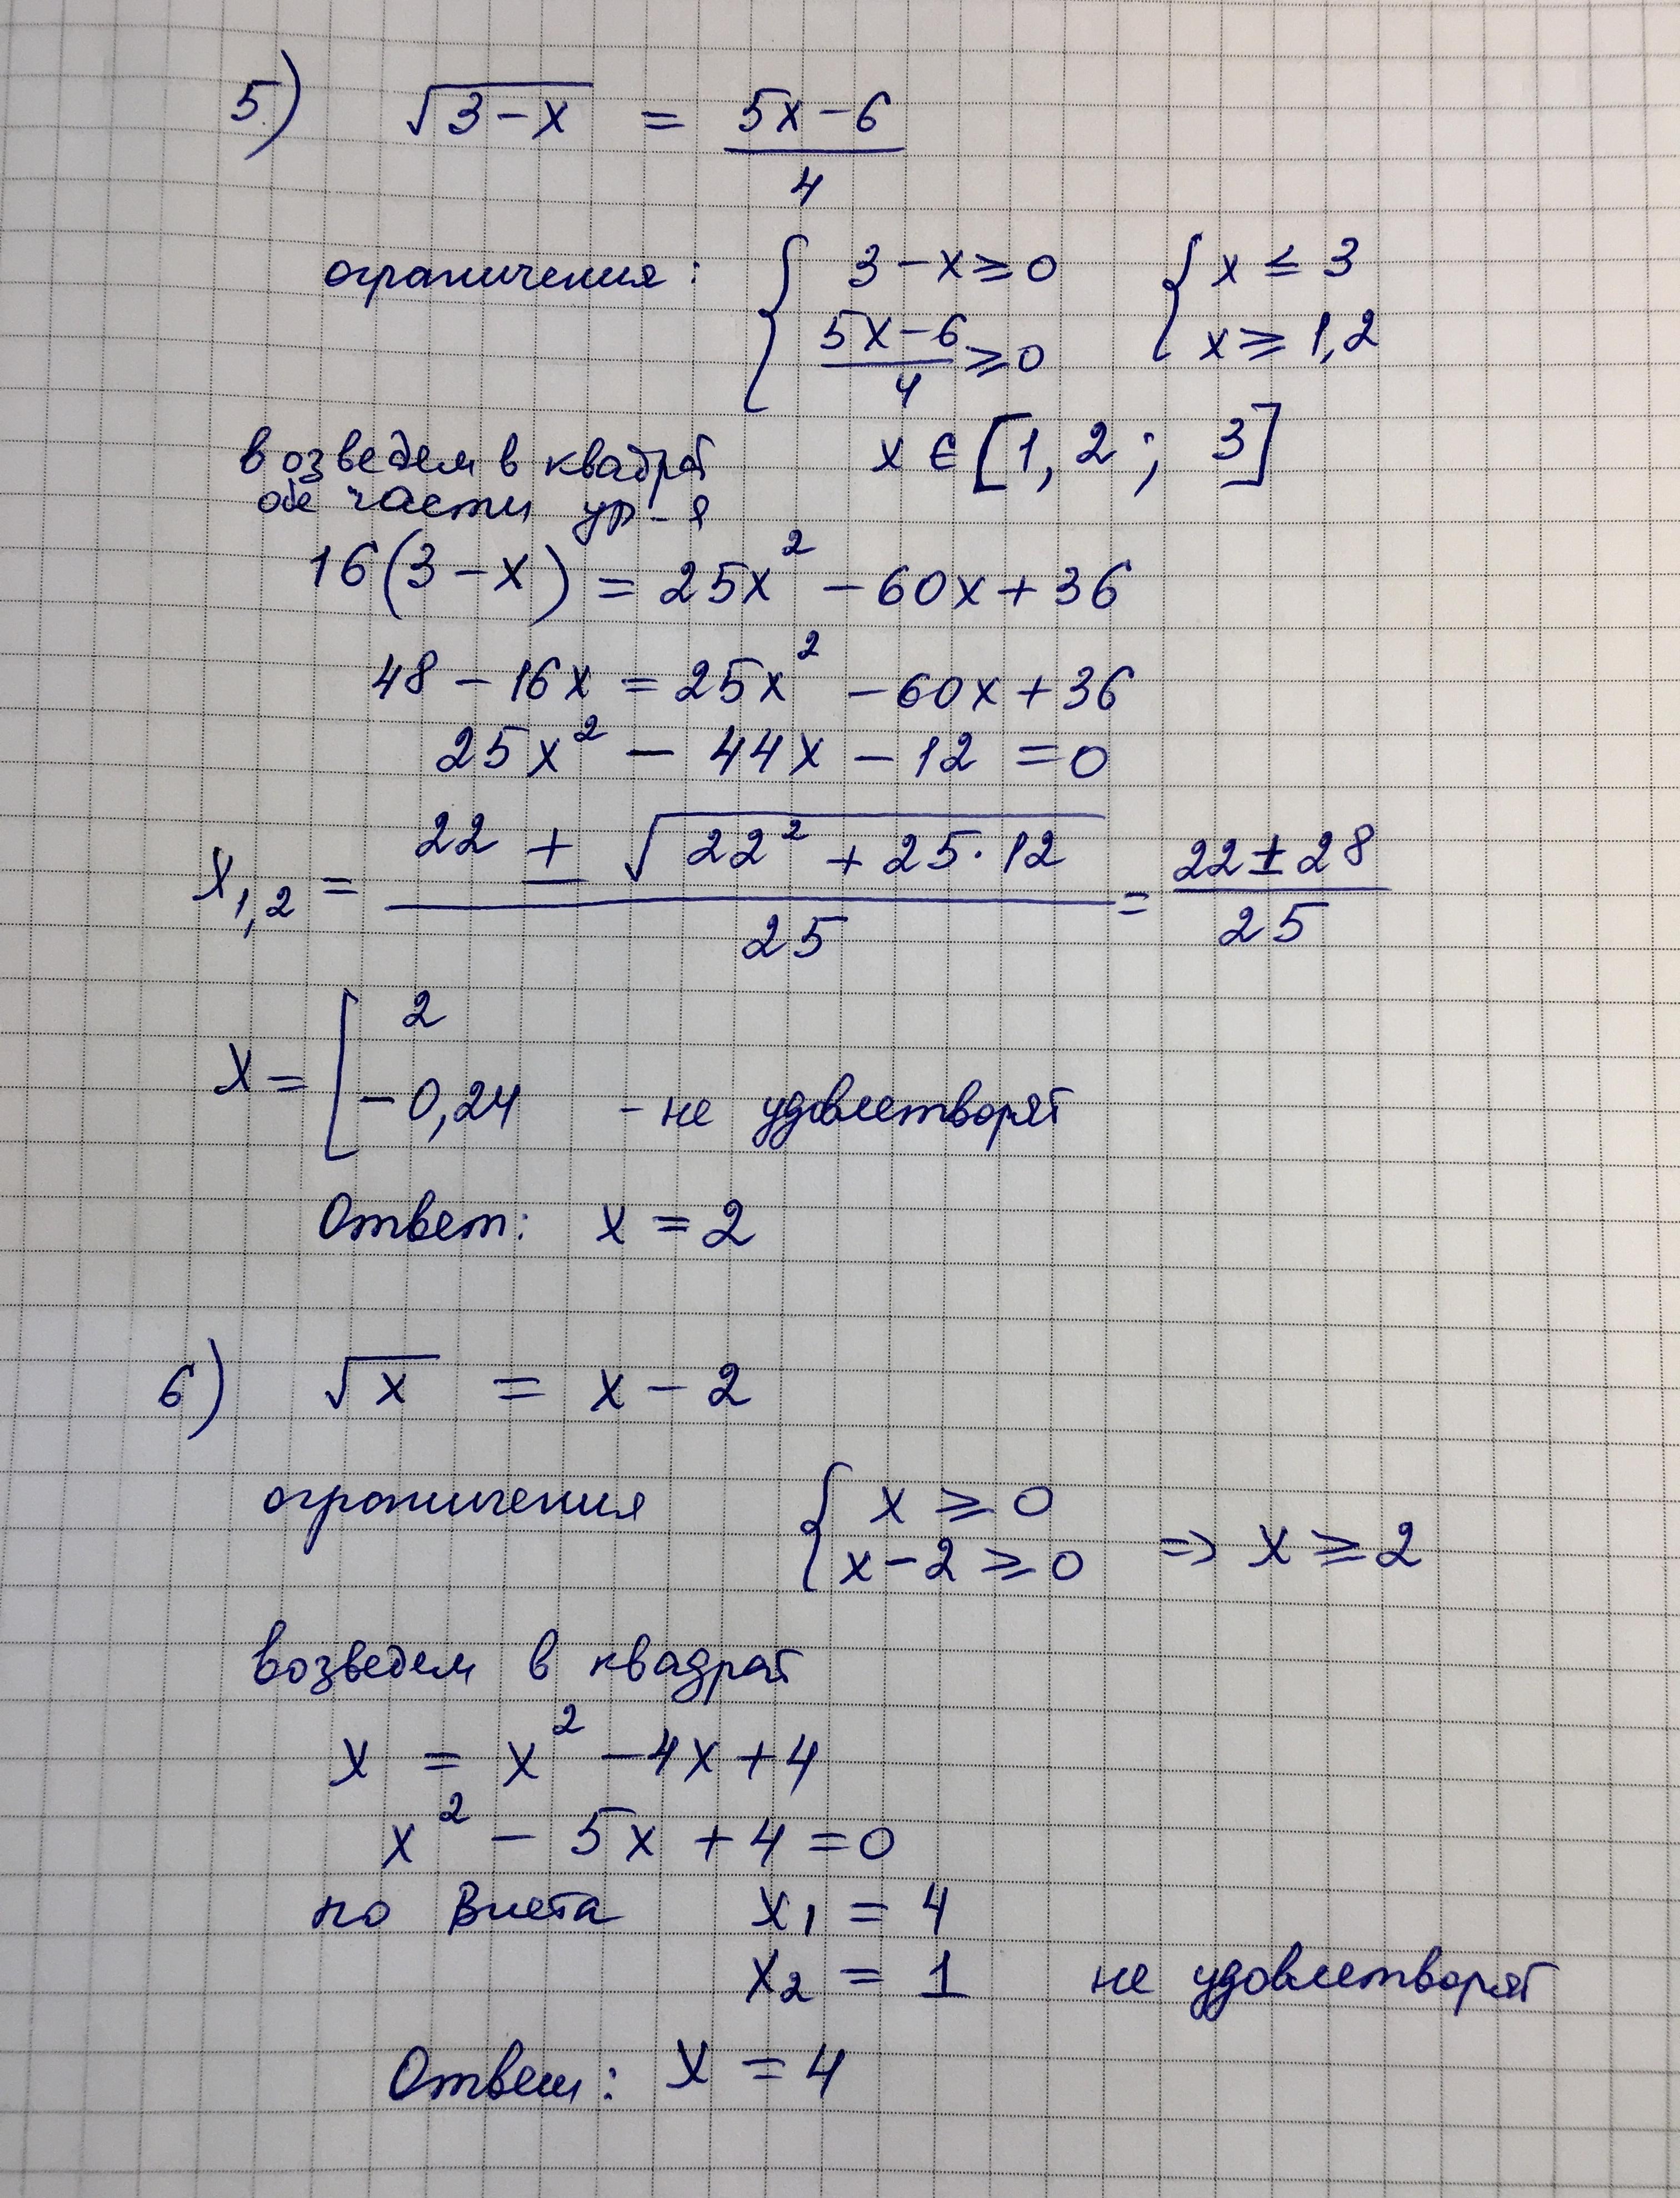 5.) √3-x = 5x-6/4
ограничения: { 3-x ≥ 0 { x ≤ 3
5x-6/4 ≥ 0 x ≥ 1,2
возведем в квадрат x ∈ [1,2; 3]
обе части ур-я
16(3-x) = 25x² - 60x + 36
48 - 16x = 25x² - 60x + 36
25x² - 44x - 12 = 0
x1,2 = 22 ± √22² + 25·12 / 25 = 22 ± 28 / 25
x = [ 2
-0,24 - не удовлетворят
Ответ: x = 2
6) √x = x - 2
ограничения { x ≥ 0
x - 2 ≥ 0 => x ≥ 2
возведем в квадрат
x = x² - 4x + 4
x² - 5x + 4 = 0
по Виета x1 = 4
x2 = 1 не удовлетворят
Ответ: x = 4